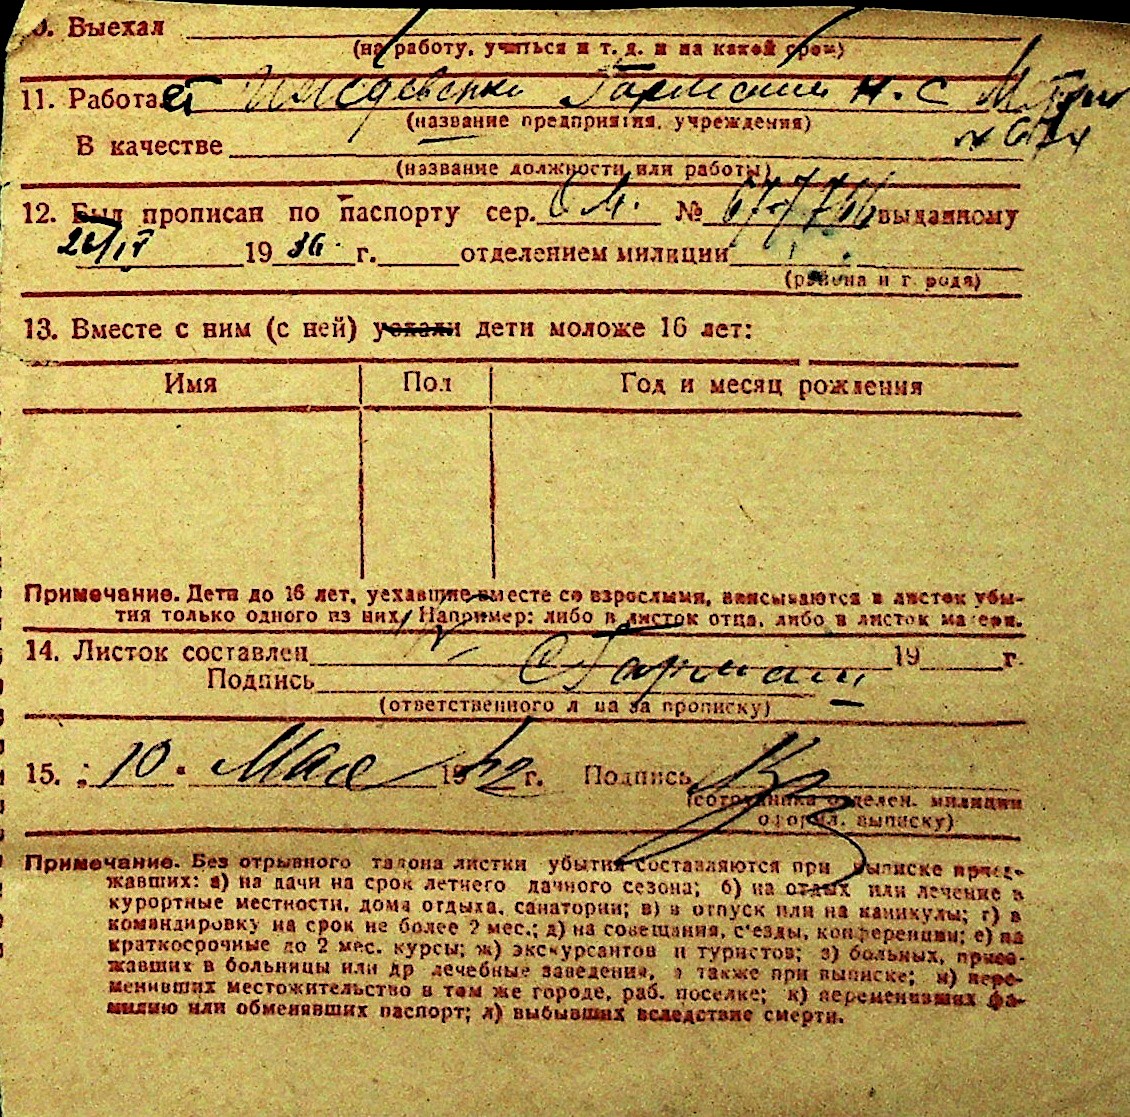 0. Выехал
(на работу, учиться и т. д. и на какой срок)
11. Работает Гармаш Н. С
(название предприятия, учреждения)
В качестве
(название должности или работы)
12. Был прописан по паспорту сер. № выданному
26/IV 1936. г. отделением милиции
(района и города)
13. Вместе с ним (с ней) уехали дети моложе 16 лет:
Имя Пол Год и месяц рождения
Примечание. Дети до 16 лет, уехавшие вместе со взрослыми, вписываются в листок убы-
тия только одного из них. Например: либо в листок отца, либо в листок матери.
14. Листок составлен 19 г.
Подпись Гармаш
(ответственного лица за прописку)
15. „10" Мая 1942 г. Подпись
(сотрудника отделен. милиции
оформ. выписку)
Примечание. Без отрывного талона листки убытия составляются при выписке приез-
жавших: а) на дачи на срок летнего дачного сезона; б) на отдых или лечение в
курортные местности, дома отдыха, санатории; в) в отпуск или на каникулы; г) в
командировку на срок не более 2 мес.; д) на совещания, с'езды, конференции; е) на
краткосрочные до 2 мес. курсы; ж) экскурсантов и туристов; з) больных, приез-
жавших в больницы или др лечебные заведения, а также при выписке; и) пере-
менивших местожительство в том же городе, раб. поселке; к) переменивших фа-
милию или обменявших паспорт; л) выбывших вследствие смерти.